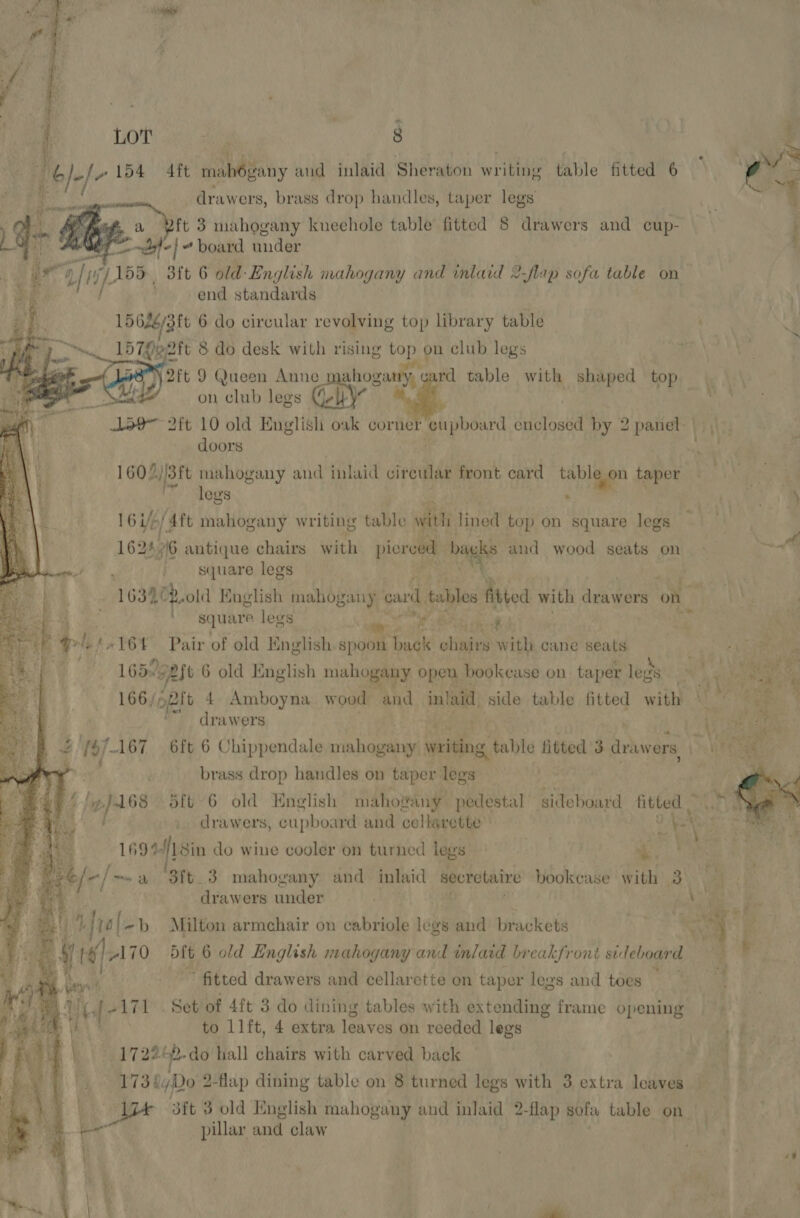 LOT 8
154 4ft mahogany and inlaid Sheraton writing table fitted 6
drawers, brass drop handles, taper legs
a 2ft 3 mahogany kneehole table fitted 8 drawers and cup-
board under
155 3ft 6 old English mahogany and inlaid 2-flap sofa table on
end standards
156 3ft 6 do circular revolving top library table
157 2ft 8 do desk with rising top on club legs
2ft 9 Queen Anne mahogany card table with shaped top
on club legs
159 2ft 10 old English oak corner cupboard enclosed by 2 panel
doors
160 3ft mahogany and inlaid circular front card table on taper
legs
161 4ft mahogany writing table with lined top on square legs
162 6 antique chairs with pierced backs and wood seats on
square legs
163 2 old English mahogany card tables fitted with drawers on
square legs
164 Pair of old English spoon back chairs with cane seats
165 2ft 6 old English mahogany open bookcase on taper legs
166 2ft 4 Amboyna wood and inlaid side table fitted with
drawers
167 6ft 6 Chippendale mahogany writing table fitted 3 drawers
brass drop handles on taper legs
168 5ft 6 old English mahogany pedestal sideboard fitted
drawers, cupboard and cellarette
169 18in do wine cooler on turned legs
a 3ft 3 mahogany and inlaid secretaire bookcase with 3
drawers under
b Milton armchair on cabriole legs and brackets
170 5ft 6 old English mahogany and inlaid breakfront sideboard
fitted drawers and cellarette on taper legs and toes
171 Set of 4ft 3 do dining tables with extending frame opening
to 11ft, 4 extra leaves on reeded legs
172 2 do hall chairs with carved back
173 Do 2-flap dining table on 8 turned legs with 3 extra leaves
174 3ft 3 old English mahogany and inlaid 2-flap sofa table on
pillar and claw